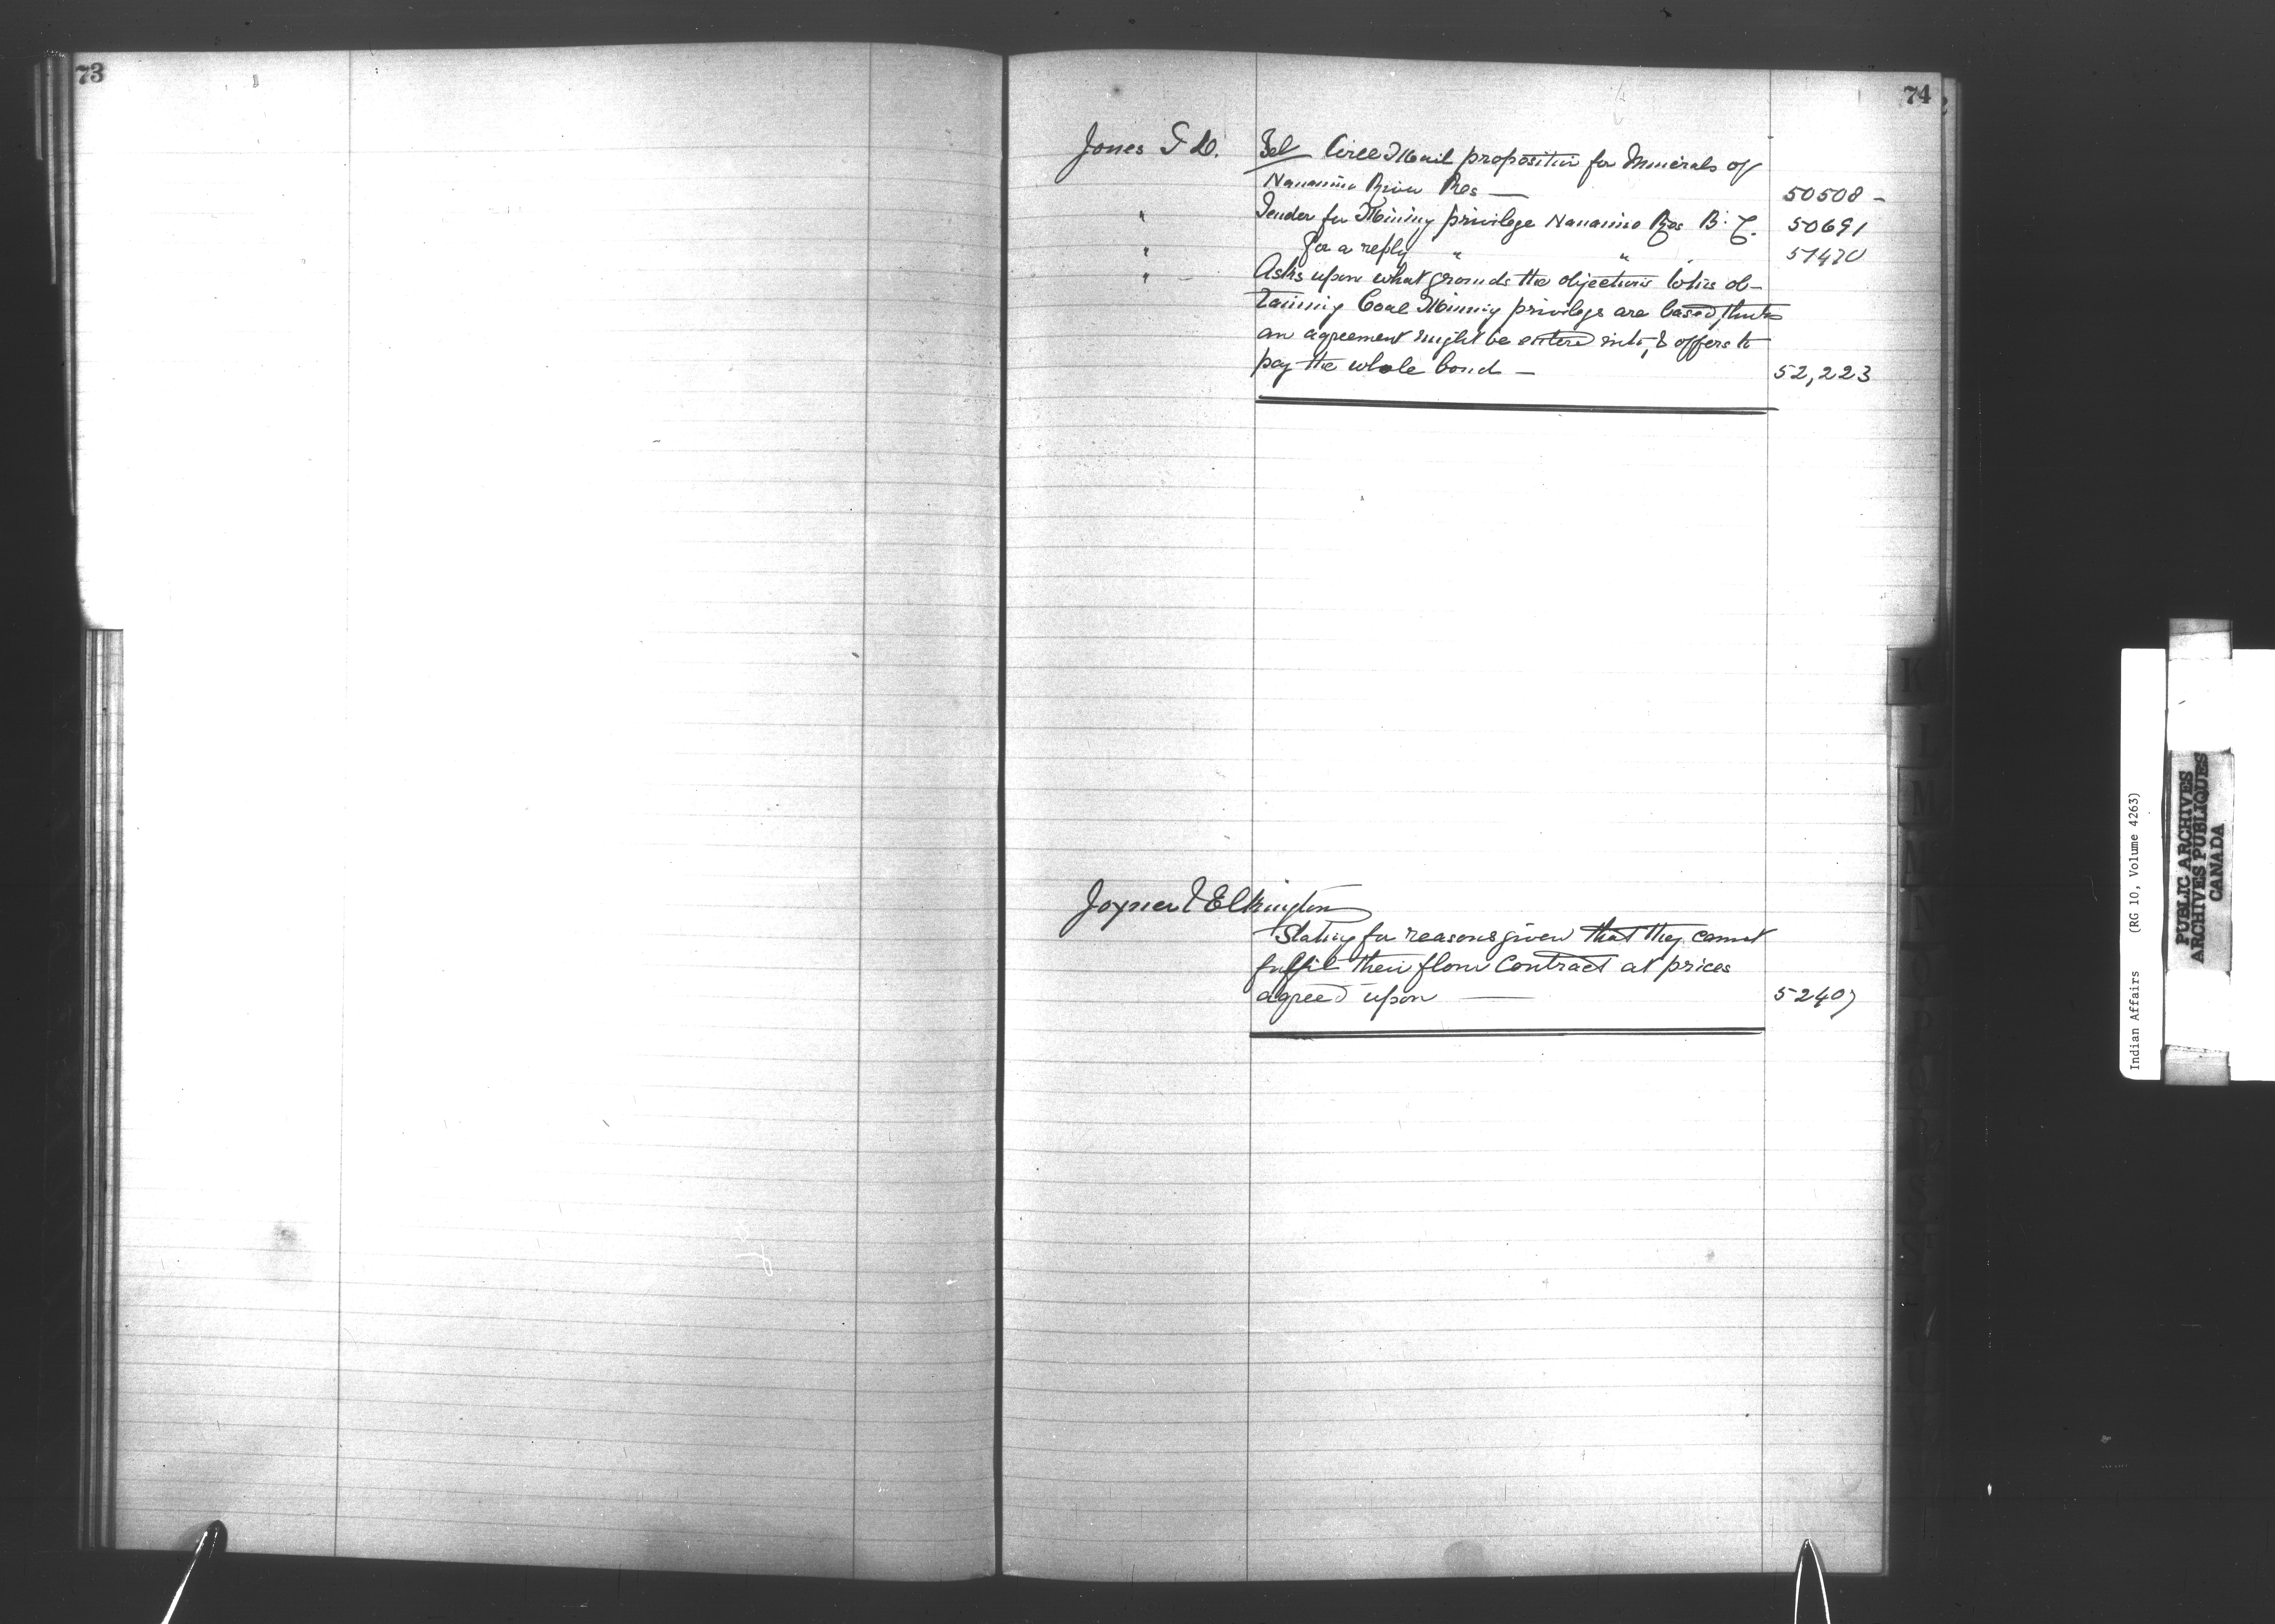 73
74
Jones T D. Tel Will Mail proposition for Minerals of
Nanaimo River Res — 50508 -
" Tender for Mining privilege Nanaimo Res B. C. 50691
" for a reply " " " 51470
" - Asks upon what grounds the objections to his ob-
taining Coal Mining privilege are based, thinks
an agreement might be entered into, & offers to
pay the whole bond — 52,223
Joyner & Elkington
Stating for reasons given that they cannot
fulfil their flour Contract at prices
agreed upon — 52407
K
L
M
N
O
P
Indian Affairs (RG 10, Volume 4263)
PUBLIC ARCHIVES
ARCHIVES PUBLIQUES
CANADA